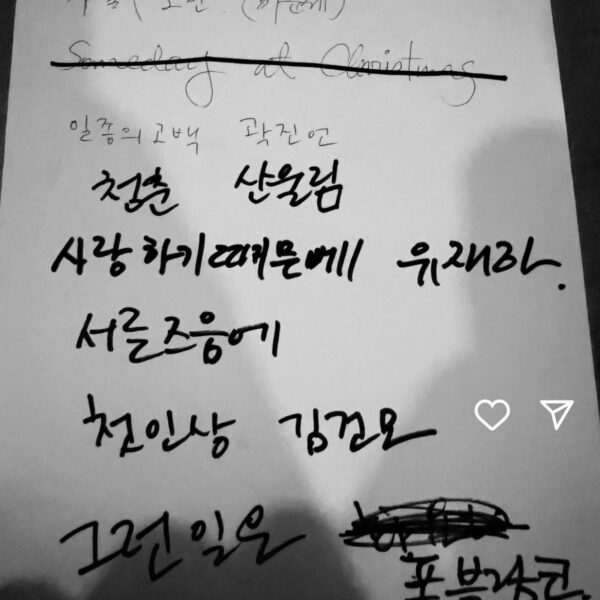 Someday at Christmas
일종의고백 곽진언
청춘 산울림
사랑하기때문에 유재하.
서른즈음에
첫인상 김건모
그런일은
포블랑코.